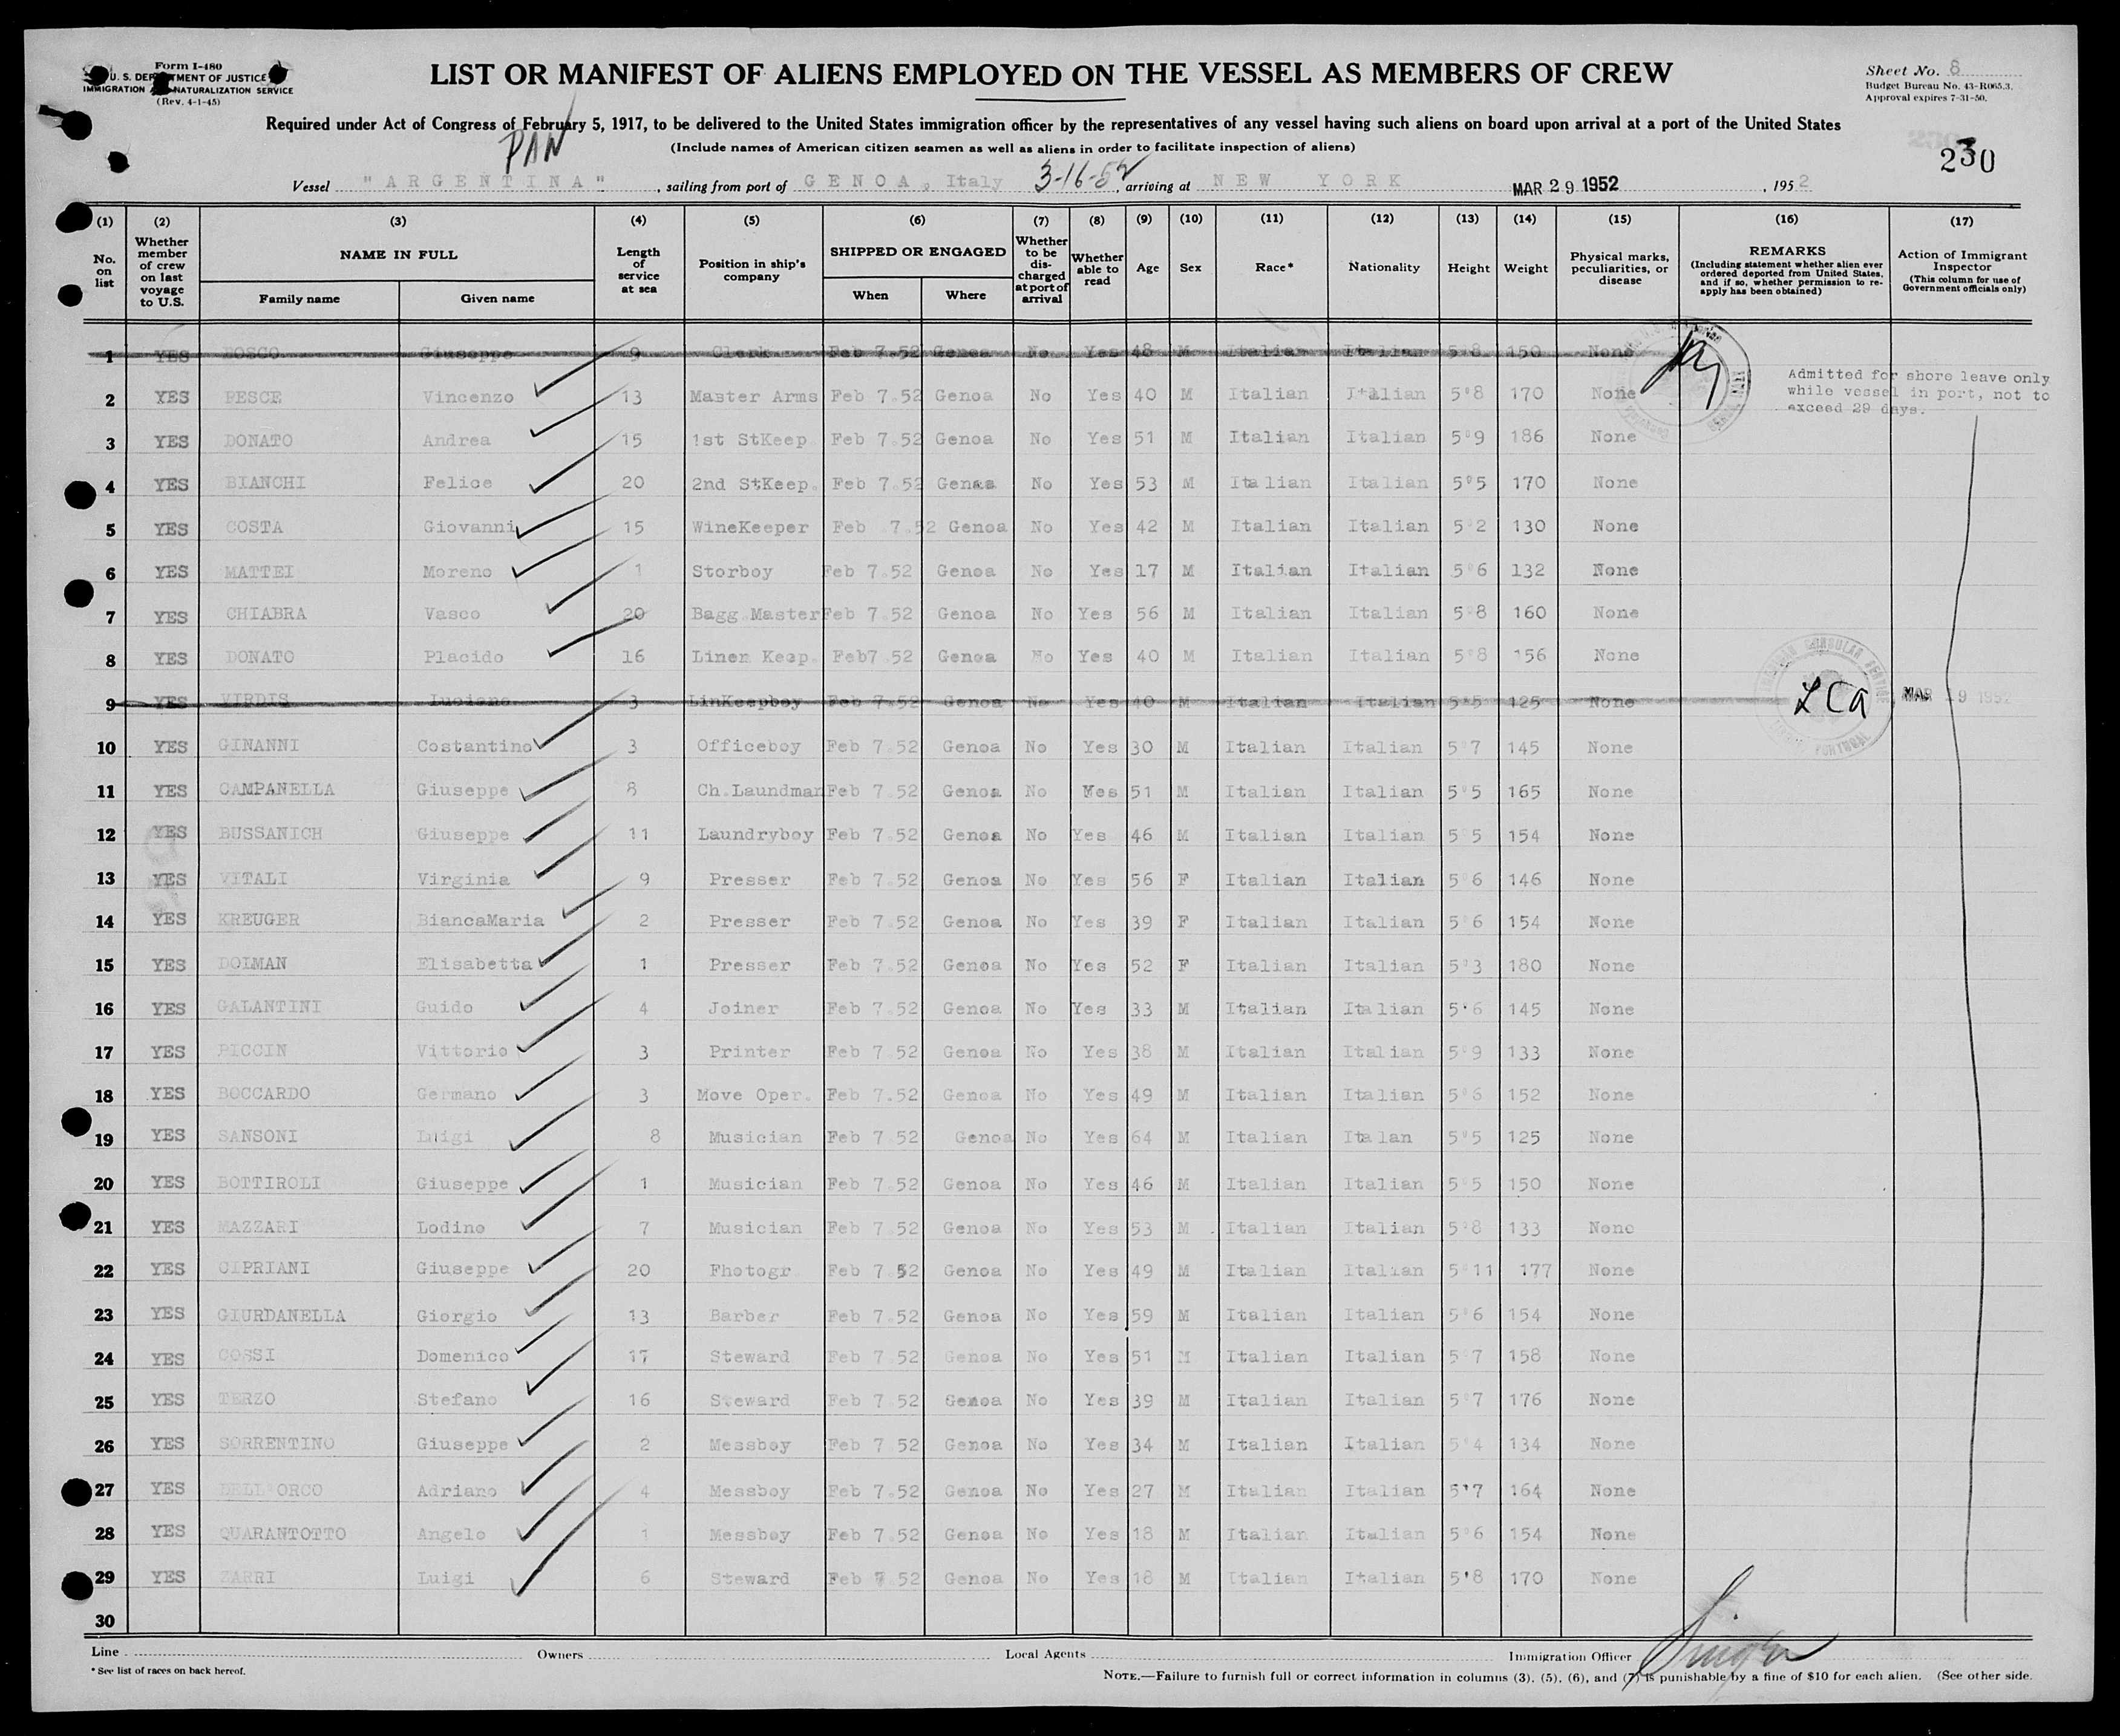 Form I-480
U. S. DEPARTMENT OF JUSTICE
IMMIGRATION AND NATURALIZATION SERVICE
(Rev. 4-1-45)
LIST OR MANIFEST OF ALIENS EMPLOYED ON THE VESSEL AS MEMBERS OF CREW
Sheet No. 8
Budget Bureau No. 43-R065.3.
Approval expires 7-31-50.
Required under Act of Congress of February 5, 1917, to be delivered to the United States immigration officer by the representatives of any vessel having such aliens on board upon arrival at a port of the United States
(Include names of American citizen seamen as well as aliens in order to facilitate inspection of aliens)
230
PAN
Vessel "ARGENTINA", sailing from port of GENOA, Italy 3-16-52, arriving at NEW YORK MAR 29 1952, 1952
(1) No. on list
(2) Whether member of crew on last voyage to U.S.
(3) NAME IN FULL
Family name Given name
(4) Length of service at sea
(5) Position in ship's company
(6) SHIPPED OR ENGAGED
When Where
(7) Whether to be discharged at port of arrival
(8) Whether able to read
(9) Age
(10) Sex
(11) Race*
(12) Nationality
(13) Height
(14) Weight
(15) Physical marks, peculiarities, or disease
(16) REMARKS
(Including statement whether alien ever ordered deported from United States, and if so, whether permission to re-apply has been obtained)
(17) Action of Immigrant Inspector
(This column for use of Government officials only)
1 YES BOSCO Giuseppe 9 Clerk Feb 7.52 Genoa No Yes 48 M Italian Italian 5'8 150 None
2 YES PESCE Vincenzo 13 Master Arms Feb 7.52 Genoa No Yes 40 M Italian Italian 5'8 170 None
Admitted for shore leave only
while vessel in port, not to
exceed 29 days.
3 YES DONATO Andrea 15 1st StKeep Feb 7.52 Genoa No Yes 51 M Italian Italian 5'9 186 None
4 YES BIANCHI Felice 20 2nd StKeep. Feb 7.52 Genoa No Yes 53 M Italian Italian 5'5 170 None
5 YES COSTA Giovanni 15 WineKeeper Feb 7.52 Genoa No Yes 42 M Italian Italian 5'2 130 None
6 YES MATTEI Moreno 1 Storboy Feb 7.52 Genoa No Yes 17 M Italian Italian 5'6 132 None
7 YES CHIABRA Vasco 20 Bagg.Master Feb 7.52 Genoa No Yes 56 M Italian Italian 5'8 160 None
8 YES DONATO Placido 16 Linen Keep. Feb7.52 Genoa No Yes 40 M Italian Italian 5'8 156 None
9 YES VIRDIS Luciano 3 LinKeepboy Feb 7.52 Genoa No Yes 40 M Italian Italian 5'5 125 None LCA MAR 19 1952
10 YES GINANNI Costantino 3 Officeboy Feb 7.52 Genoa No Yes 30 M Italian Italian 5'7 145 None
11 YES CAMPANELLA Giuseppe 8 Ch.Laundman Feb 7.52 Genoa No Yes 51 M Italian Italian 5'5 165 None
12 YES BUSSANICH Giuseppe 11 Laundryboy Feb 7.52 Genoa No Yes 46 M Italian Italian 5'5 154 None
13 YES VITALI Virginia 9 Presser Feb 7.52 Genoa No Yes 56 F Italian Italian 5'6 146 None
14 YES KREUGER BiancaMaria 2 Presser Feb 7.52 Genoa No Yes 39 F Italian Italian 5'6 154 None
15 YES DOIMAN Elisabetta 1 Presser Feb 7.52 Genoa No Yes 52 F Italian Italian 5'3 180 None
16 YES GALANTINI Guido 4 Joiner Feb 7.52 Genoa No Yes 33 M Italian Italian 5'6 145 None
17 YES PICCIN Vittorio 3 Printer Feb 7.52 Genoa No Yes 38 M Italian Italian 5'9 133 None
18 YES BOCCARDO Germano 3 Move Oper. Feb 7.52 Genoa No Yes 49 M Italian Italian 5'6 152 None
19 YES SANSONI Luigi 8 Musician Feb 7.52 Genoa No Yes 64 M Italian Ita lan 5'5 125 None
20 YES BOTTIROLI Giuseppe 1 Musician Feb 7.52 Genoa No Yes 46 M Italian Italian 5'5 150 None
21 YES MAZZARI Lodino 7 Musician Feb 7.52 Genoa No Yes 53 M Italian Italian 5'8 133 None
22 YES CIPRIANI Giuseppe 20 Fhotogr Feb 7.52 Genoa No Yes 49 M Italian Italian 5'11 177 None
23 YES GIURDANELLA Giorgio 13 Barber Feb 7.52 Genoa No Yes 59 M Italian Italian 5'6 154 None
24 YES COSSI Domenico 17 Steward Feb 7.52 Genoa No Yes 51 M Italian Italian 5'7 158 None
25 YES TERZO Stefano 16 Steward Feb 7.52 Genoa No Yes 39 M Italian Italian 5'7 176 None
26 YES SORRENTINO Giuseppe 2 Messboy Feb 7.52 Genoa No Yes 34 M Italian Italian 5'4 134 None
27 YES DELL'ORCO Adriano 4 Messboy Feb 7.52 Genoa No Yes 27 M Italian Italian 5'7 164 None
28 YES QUARANTOTTO Angelo 1 Messboy Feb 7.52 Genoa No Yes 18 M Italian Italian 5'6 154 None
29 YES ZARRI Luigi 6 Steward Feb 7.52 Genoa No Yes 18 M Italian Italian 5'8 170 None
30
Line Owners Local Agents Immigration Officer
* See list of races on back hereof.
NOTE.—Failure to furnish full or correct information in columns (3), (5), (6), and (7) is punishable by a fine of $10 for each alien. (See other side.